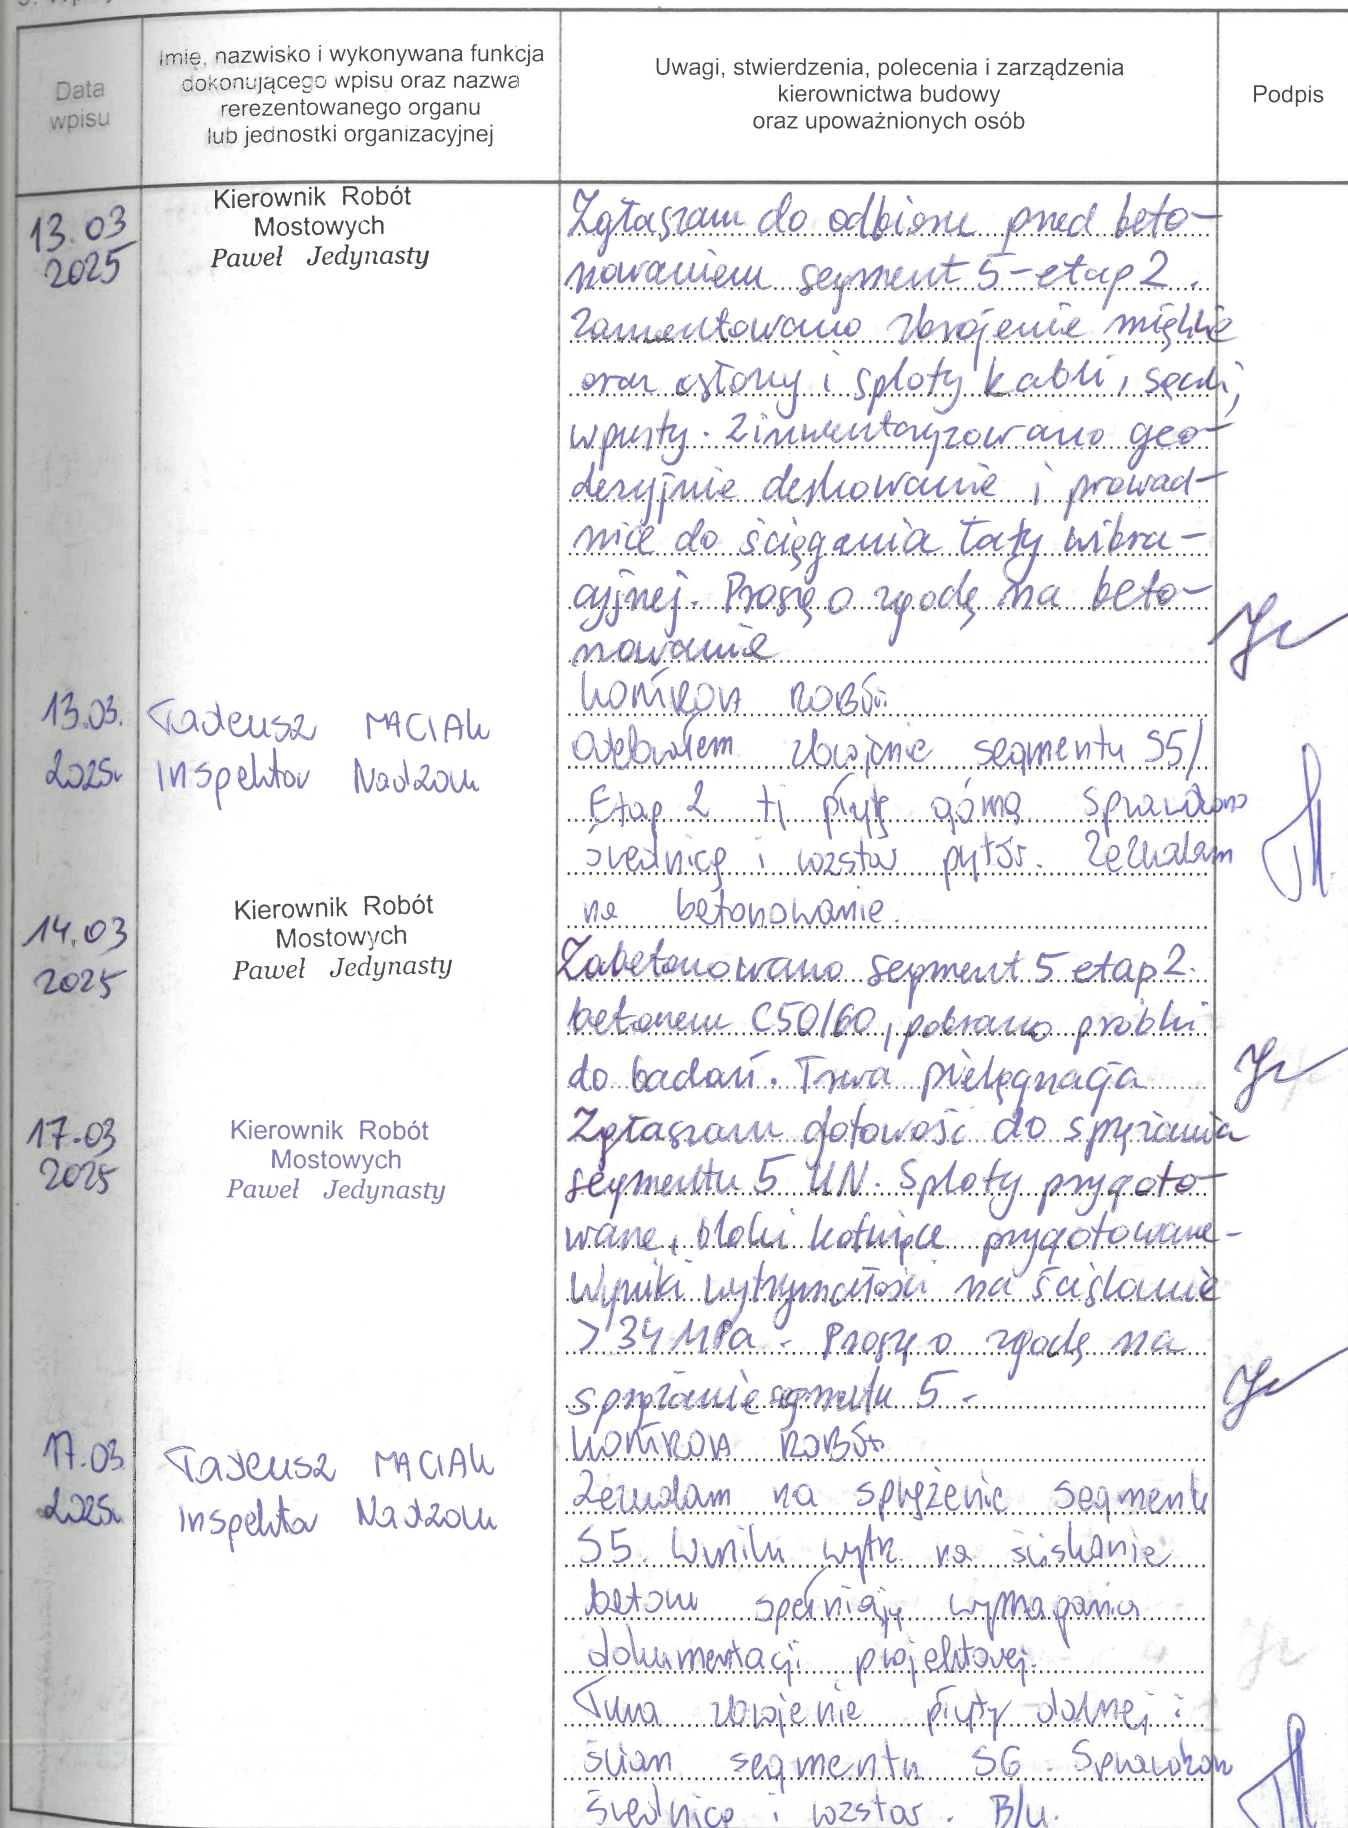 Data
wpisu
Imię, nazwisko i wykonywana funkcja
dokonującego wpisu oraz nazwa
rerezentowanego organu
lub jednostki organizacyjnej
Uwagi, stwierdzenia, polecenia i zarządzenia
kierownictwa budowy
oraz upoważnionych osób
Podpis
13.03
2025
Kierownik Robót
Mostowych
Paweł Jedynasty
Zgłaszam do odbioru przed beto-
nowaniem segment 5 - etap 2.
Zamontowano zbrojenie miękkie
oraz osłony i sploty kabli, sączki,
wpusty. Zinwentaryzowano geo-
dezyjnie deskowanie i prowad-
nice do ściągania łaty wibra-
cyjnej. Proszę o zgodę na beto-
nowanie
13.03.
2025r
Tadeusz MACIAK
Inspektor Nadzoru
KONTROLA ROBÓT:
Odebrałem zbrojenie segmentu S5/
Etap 2 tj płytę górną Sprawdzono
średnicę i rozstaw prętów. Zezwalam
na betonowanie.
14.03
2025
Kierownik Robót
Mostowych
Paweł Jedynasty
Zabetonowano segment 5 etap 2.
betonem C50/60, pobrano próbki
do badań. Trwa pielęgnacja
17.03
2025
Kierownik Robót
Mostowych
Paweł Jedynasty
Zgłaszam gotowość do sprężania
segmentu 5 UN. Sploty przygoto-
wane, bloki kotwiące przygotowane -
Wyniki wytrzymałości na ściskanie
> 34 MPa - Proszę o zgodę na
sprężanie segmentu 5 -
17.03
2025r
Tadeusz MACIAK
Inspektor Nadzoru
KONTROLA ROBÓT
Zezwalam na sprężenie segmentu
S5. Wyniki wytrz. na ściskanie
betonu spełniają wymagania
dokumentacji projektowej.
Trwa zbrojenie płyty dolnej i
ścian segmentu S6. Sprawdzono
średnicę i rozstaw. B/u.